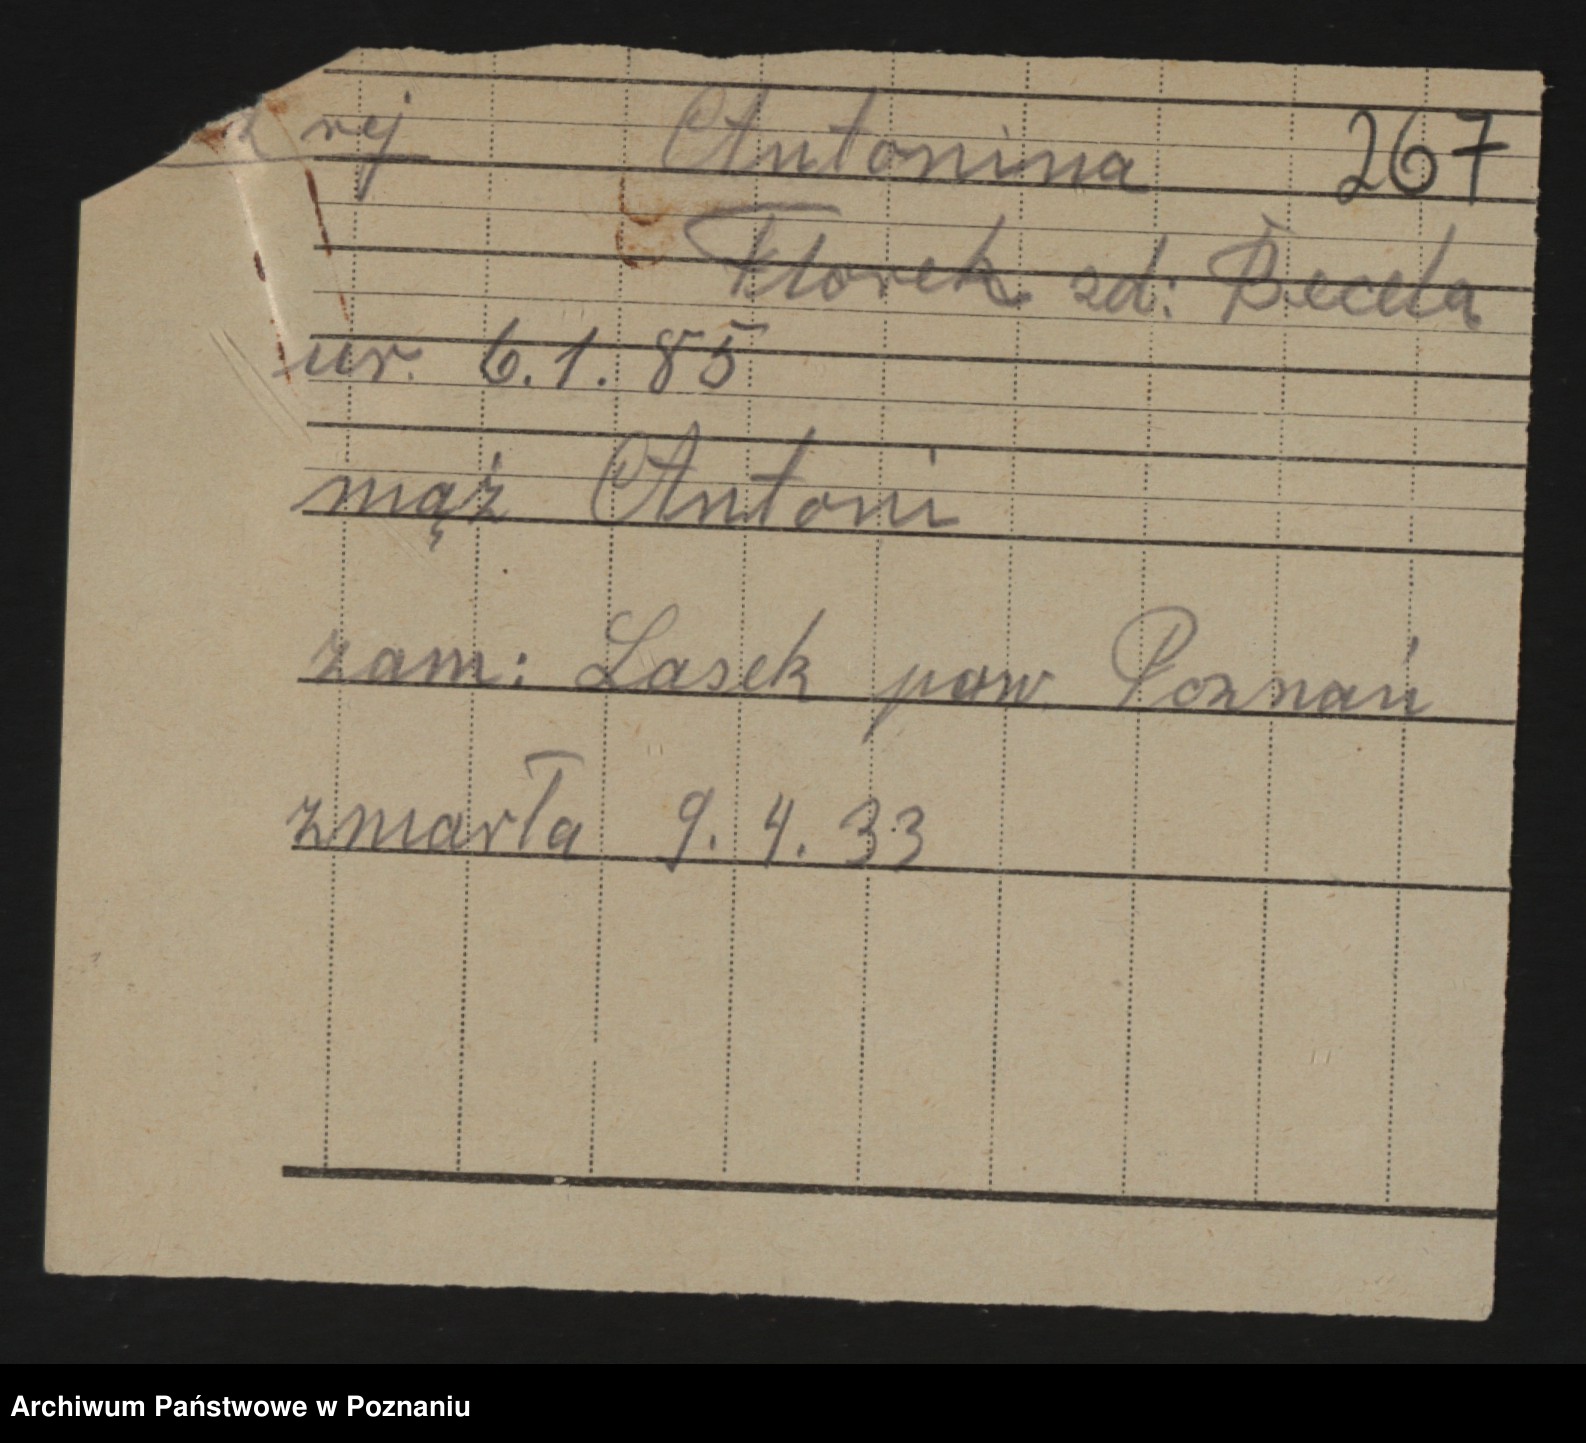 rej Antonina 267
Florek zd: Becela
ur. 6.1.85
mąż Antoni
zam: Lasek pow. Poznań
zmarła 9.4.33
Archiwum Państwowe w Poznaniu